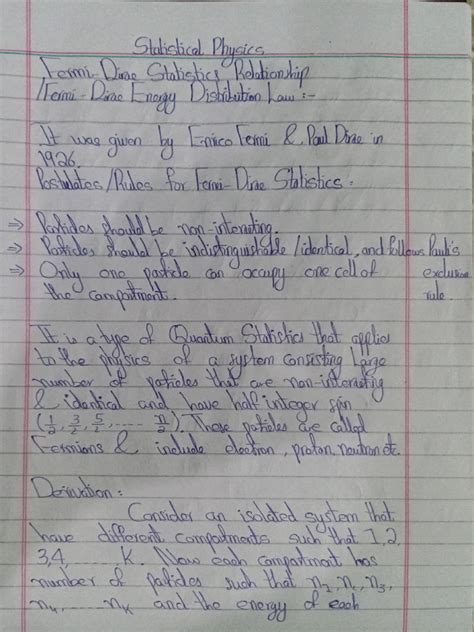 Statistical Physics
Fermi-Dirac Statistics Relationship
/Fermi-Dirac Energy Distribution Law :-
It was given by Enrico Fermi & Paul Dirac in
1926.
Postulates/Rules for Fermi-Dirac Statistics :
⇒ Particles should be non-interacting.
⇒ Particles should be indistinguishable/identical, and follows Pauli's
⇒ Only one particle can occupy one cell of exclusion
the compartment. rule.
It is a type of Quantum Statistics that applies
to the physics of a system consisting Large
number of particles that are non-interacting
& identical and have half integer spin
(1/2, 3/2, 5/2, ..... n/2). These particles are called
Fermions & include electron, proton, neutron etc.
Derivation :
Consider an isolated system that
have different compartments such that 1, 2,
3, 4, ....... K. Now each compartment has
number of particles such that n₂, n₁, n₃,
n₄, ....... nₖ and the energy of each